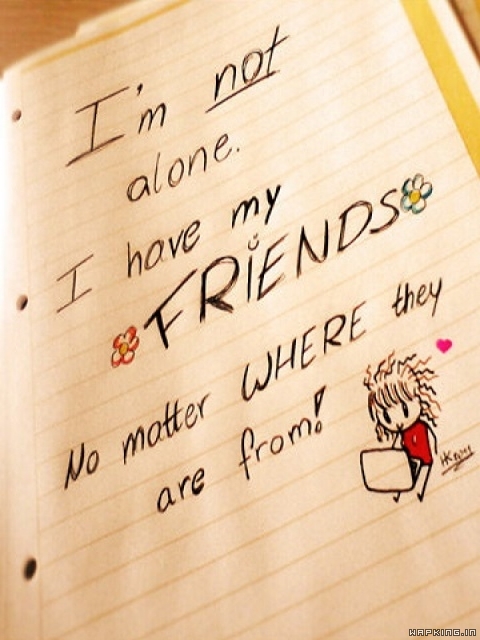 I'm not
alone.
I have my
FRIENDS
No matter WHERE they
are from!
WAPKING.IN